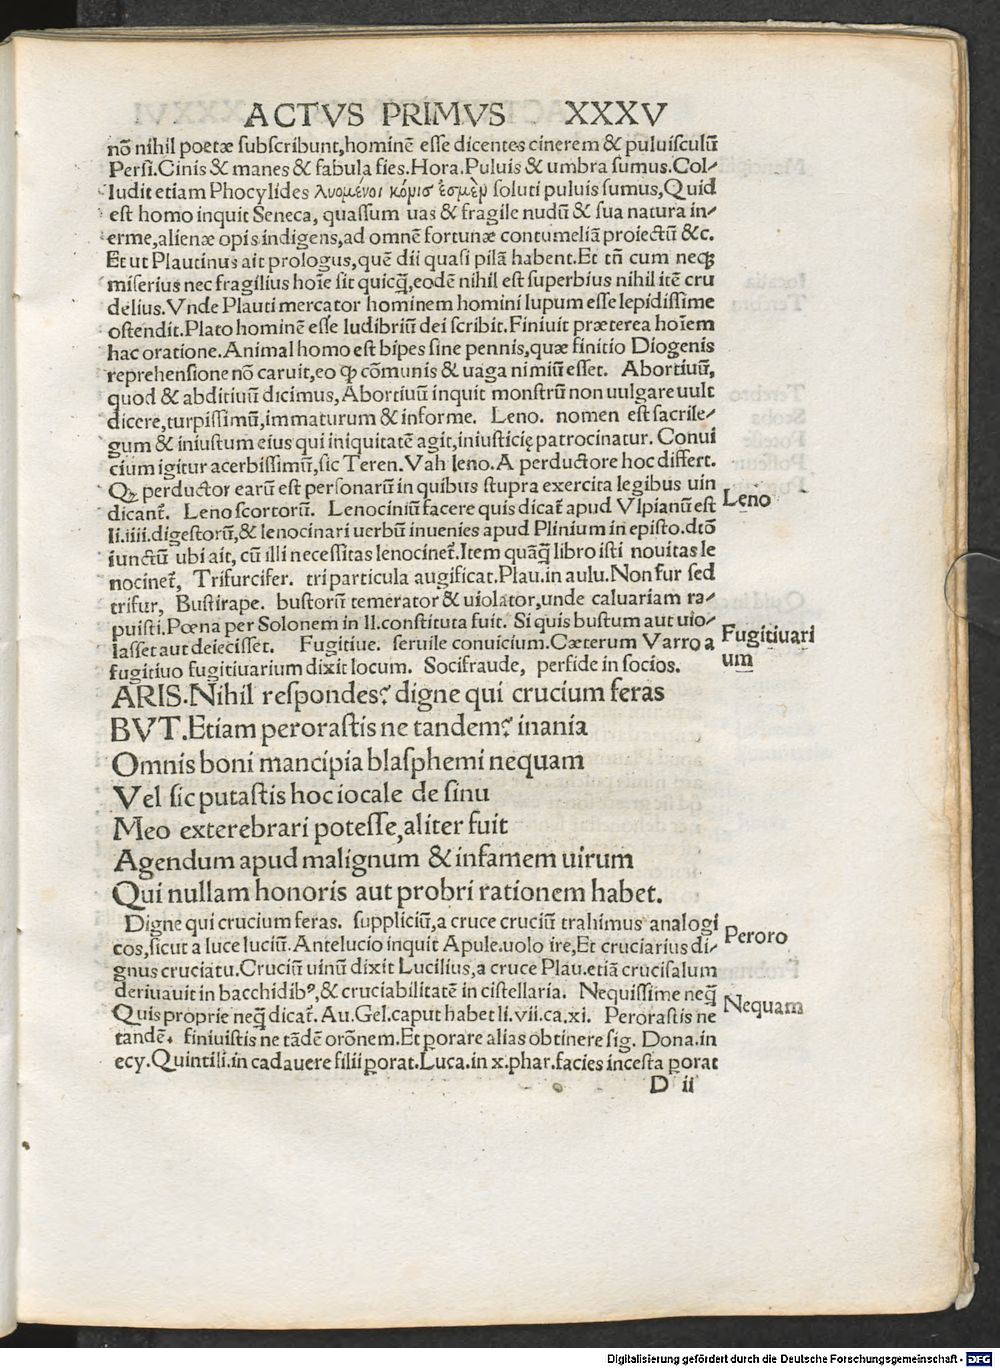 ACTVS PRIMVS XXXV
nō nihil poetæ subscribunt,hominē esse dicentes cinerem & puluisculū
Persi.Cinis & manes & fabula fies.Hora.Puluis & umbra sumus.Col-
ludit etiam Phocylides λυομένοι κόμισ ἐσμὲν soluti puluis sumus,Quid
est homo inquit Seneca, quassum uas & fragile nudū & sua natura in-
erme,alienæ opis indigens,ad omnē fortunæ contumeliā proiectū &c.
Et ut Plautinus ait prologus,quē dii quasi pilā habent.Et tñ cum neqꝫ
miserius nec fragilius hoīe sit quicq̄,eodē nihil est superbius nihil itē cru
delius.Vnde Plauti mercator hominem homini lupum esse lepidissime
ostendit.Plato hominē esse ludibriū dei scribit.Finiuit præterea hoīem
hac oratione.Animal homo est bipes sine pennis,quæ finitio Diogenis
reprehensione nō caruit,eo ꝙ cōmunis & uaga nimiū esset. Abortiuū,
quod & abditiuū dicimus,Abortiuū inquit monstrū non uulgare uult
dicere,turpissimū,immaturum & informe. Leno. nomen est sacrile-
gum & iniustum eius qui iniquitatē agit,iniusticię patrocinatur. Conui
cium igitur acerbissimū,sic Teren.Vah leno.A perductore hoc differt.
Qꝫ perductor earū est personarū in quibus stupra exercita legibus uin
dicanť. Leno scortorū. Lenociniū facere quis dicať apud Vlpianū est
li.iiii.digestorū,& lenocinari uerbū inuenies apud Plinium in episto.dtō
iunctū ubi ait, cū illi necessitas lenocineť.Item quāq̄ libro isti nouitas le
nocineť, Trifurcifer. tri particula augificat.Plau.in aulu.Non fur sed
trifur, Bustirape. bustorū temerator & uiolator,unde caluariam ra-
puisti.Pœna per Solonem in II.constituta fuit. Si quis bustum aut uio-
lasset aut deiecisset. Fugitiue. seruile conuicium.Cæterum Varro a
fugitiuo fugitiuarium dixit locum. Socifraude, perfide in socios.
Leno
Fugitiuari
um
ARIS.Nihil respondes? digne qui crucium feras
BVT.Etiam perorastis ne tandem? inania
Omnis boni mancipia blasphemi nequam
Vel sic putastis hoc iocale de sinu
Meo exterebrari potesse,aliter fuit
Agendum apud malignum & infamem uirum
Qui nullam honoris aut probri rationem habet.
Digne qui crucium feras. suppliciū,a cruce cruciū trahimus analogi
cos,sicut a luce luciū.Antelucio inquit Apule.uolo ire,Et cruciarius di-
gnus cruciatu.Cruciū uinū dixit Lucilius,a cruce Plau.etiā crucisalum
deriuauit in bacchidibꝰ,& cruciabilitatē in cistellaria. Nequissime neq̄
Quis proprie neq̄ dicať. Au.Gel.caput habet li.vii.ca.xi. Perorastis ne
tandē. finiuistis ne tādē orōnem.Et ꝑorare alias obtinere sig. Dona.in
ecy.Quintili.in cadauere filii ꝑorat.Luca.in x.phar.facies incesta ꝑorat
Peroro
Nequam
D ii
Digitalisierung gefördert durch die Deutsche Forschungsgemeinschaft - DFG